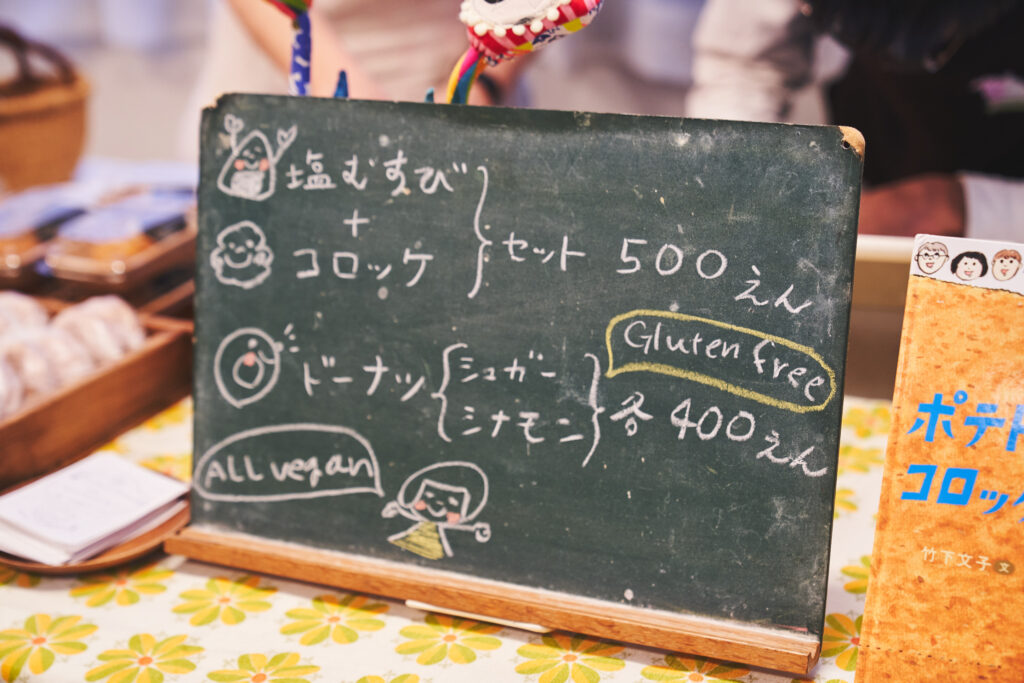 塩むすび
+
コロッケ
セット 500えん
Gluten free
ドーナツ
シュガー
シナモン
各 400えん
ALL vegan
ポテト
コロッケ
竹下文子 文